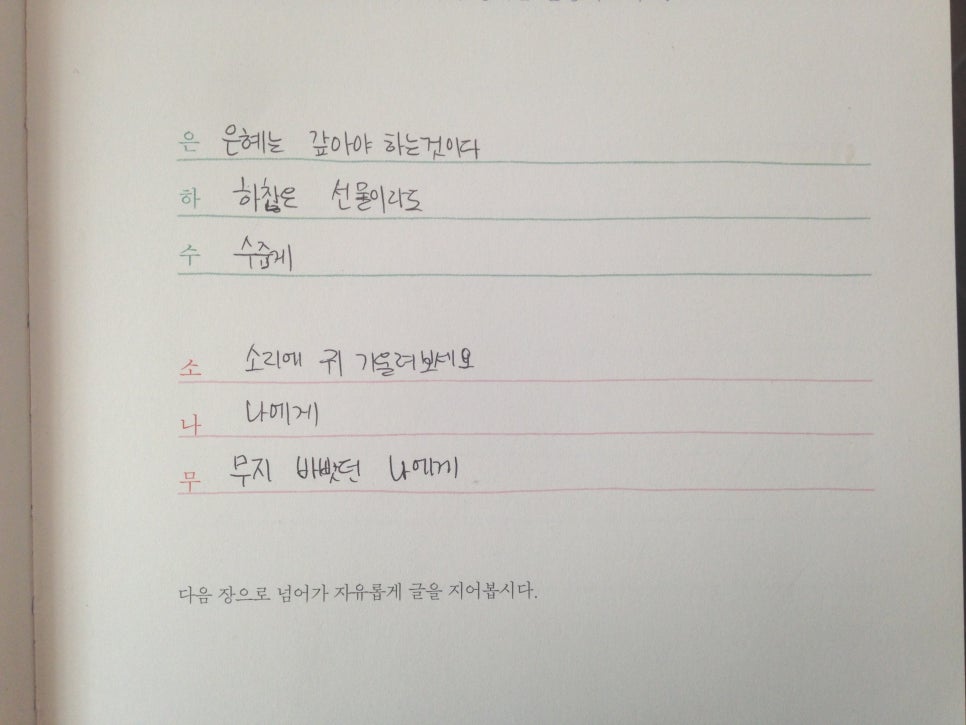 은 은혜는 갚아야 하는것이다
하 하찮은 선물이라도
수 수줍게
소 소리에 귀 기울려보세요
나 나에게
무 무지 바빴던 나에게
다음 장으로 넘어가 자유롭게 글을 지어봅시다.